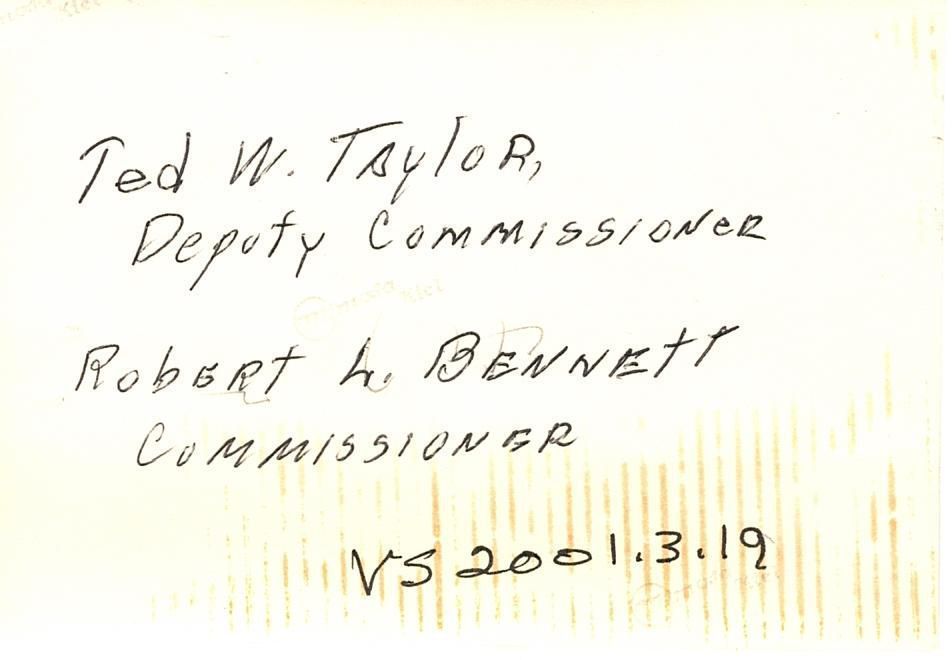 Ted W. Taylor,
Deputy Commissioner
Robert L. Bennett
Commissioner
VS 2001.3.19